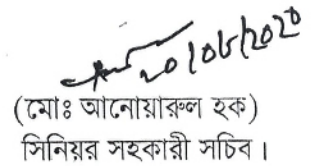 20/06/2020
(মোঃ আনোয়ারুল হক)
সিনিয়র সহকারী সচিব।